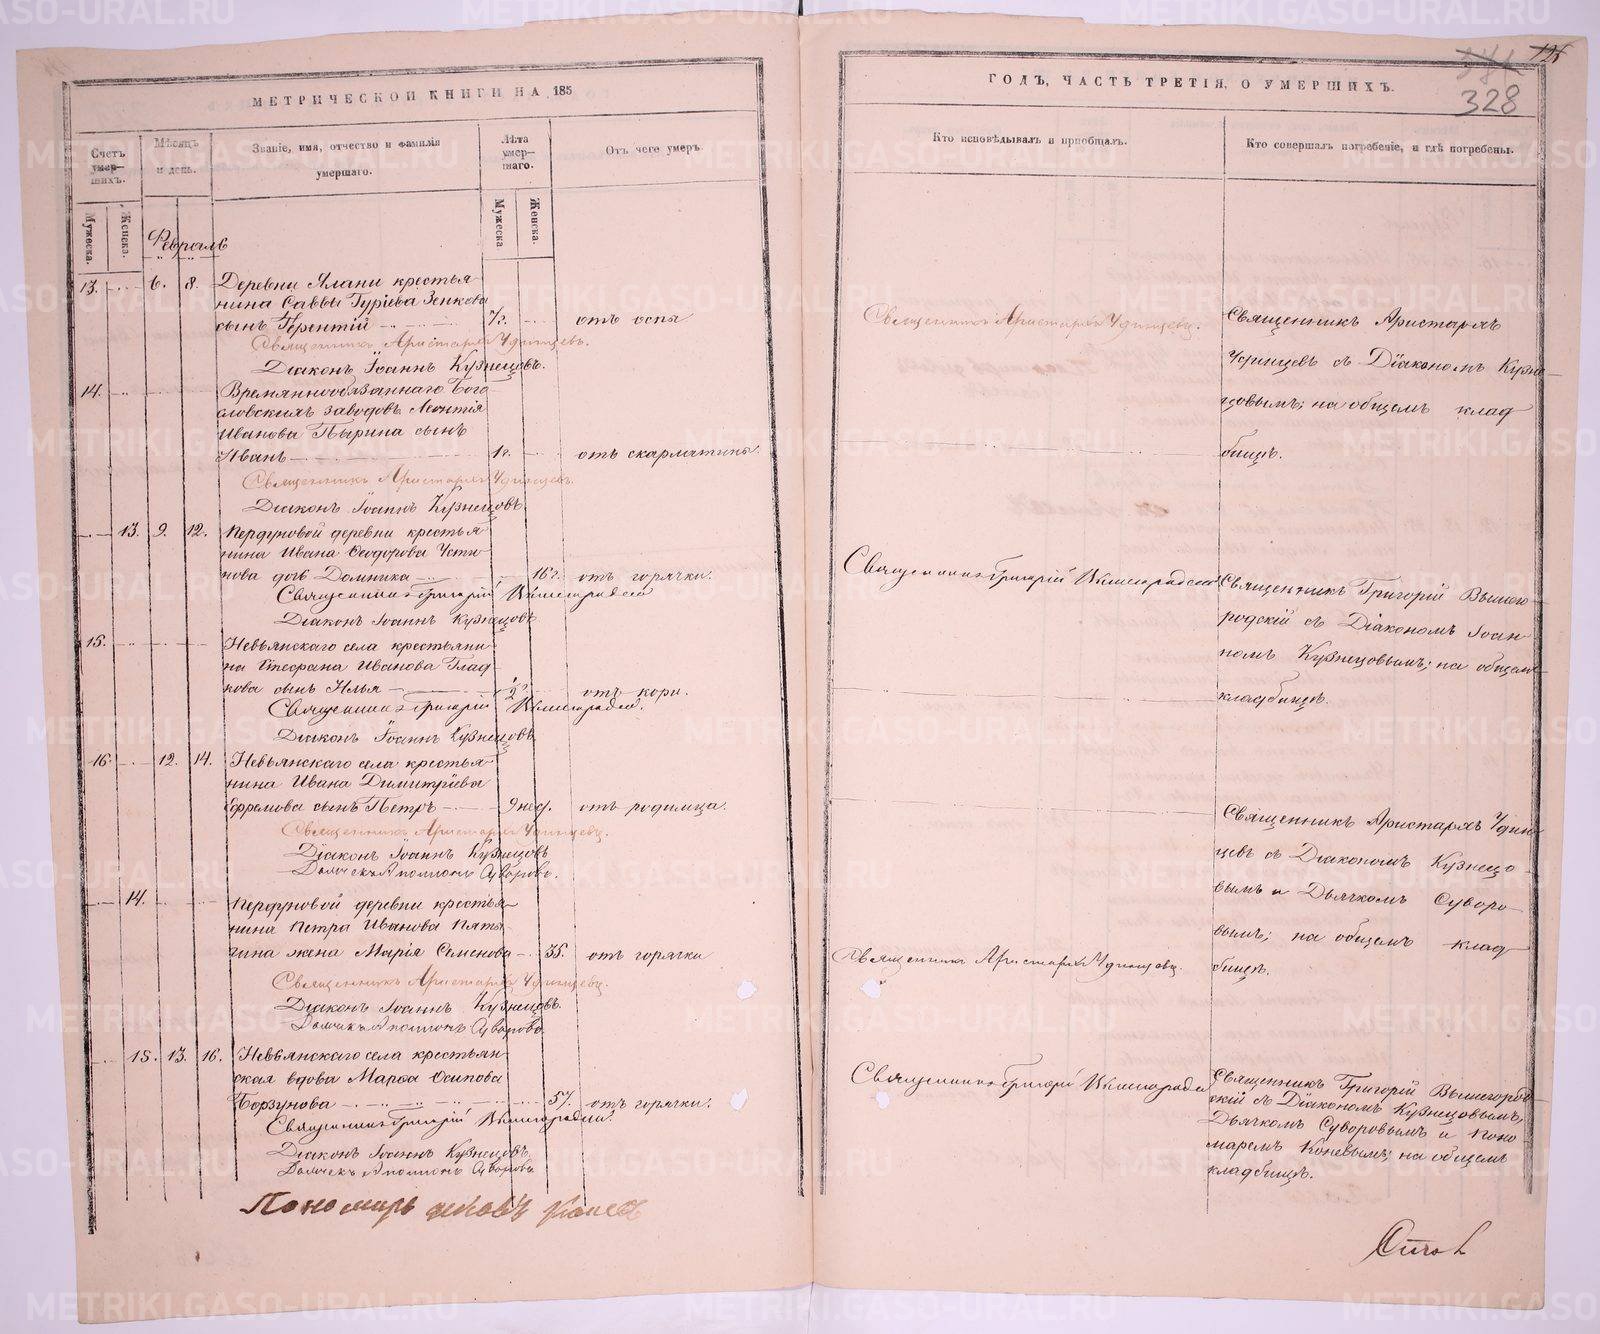 МЕТРИЧЕСКОЙ КНИГИ НА 185
Счетъ умер-шихъ.
Мѣсяцъ и день.
Званіе, имя, отчество и фамилія умершаго.
Лѣта умер-шаго.
Отъ чего умеръ.
Мужеска.
Женска.
Мужеска
Женска.
Февраль
13. 6. 8. Деревни Ялани крестья
нина Саввы Гуріева Зенкова
сынъ Терентій отъ оспы
Священникъ Аристархъ Удинцевъ.
Діаконъ Іоаннъ Кузнецовъ.
14. Времяннообязаннаго Бого
словскихъ заводовъ Леонтія
Иванова Пырина сынъ
Иванъ 1 г. отъ скарлатины.
Священникъ Аристархъ Удинцевъ.
Діаконъ Іоаннъ Кузнецовъ
13. 9. 12. Пердуновой деревни крестья
нина Ивана Ѳеодорова Усти
нова дочь Домника 16 г. отъ горячки.
Священникъ Григорій Вышегородскій
Діаконъ Іоаннъ Кузнецовъ
15. Невьянскаго села крестьяни
на Стефана Иванова Глад
кова сынъ Илья отъ кори.
Священникъ Григорій Вышегородскій.
Діаконъ Іоаннъ Кузнецовъ
16. 12. 14. Невьянскаго села крестья
нина Ивана Димитріева
Ефремова сынъ Петръ 9 нед. отъ родимца.
Священникъ Аристархъ Удинцевъ.
Діаконъ Іоаннъ Кузнецовъ
Дьячекъ Аполлонъ Суворовъ.
14. Пердуновой деревни крестья
нина Петра Иванова Пяты
гина жена Марія Семенова 35. отъ горячки
Священникъ Аристархъ Удинцевъ.
Діаконъ Іоаннъ Кузнецовъ.
Дьячекъ Аполлонъ Суворовъ.
15. 13. 16. Невьянскаго села крестьян
ская вдова Марѳа Осипова
Борзунова 57. отъ горячки.
Священникъ Григорій Вышегородскій.
Діаконъ Іоаннъ Кузнецовъ
Дьячекъ Аполлонъ Суворовъ
Пономарь Яковъ Коневъ
328
ГОДЪ, ЧАСТЬ ТРЕТІЯ, О УМЕРШИХЪ.
Кто исповѣдывалъ и пріобщалъ.
Кто совершалъ погребеніе, и гдѣ погребены.
Священникъ Аристархъ Удинцевъ.
Священникъ Аристархъ
Удинцевъ съ Діакономъ Кузне
цовымъ; на общемъ клад
бищѣ.
Священникъ Григорій Вышегородскій
Священникъ Григорій Вышего
родскій съ Діакономъ Іоан
номъ Кузнецовымъ; на общемъ
кладбищѣ.
Священникъ Аристархъ Удин
цевъ съ Діакономъ Кузнецо
вымъ и Дьячкомъ Суворо
вымъ; на общемъ клад
бищѣ.
Священникъ Аристархъ Удинцевъ.
Священникъ Григорій Вышегородскій
Священникъ Григорій Вышегород
скій съ Діакономъ Кузнецовымъ,
Дьячкомъ Суворовымъ и Поно
маремъ Коневымъ; на общемъ
кладбищѣ.
METRIKI.GASO-URAL.RU